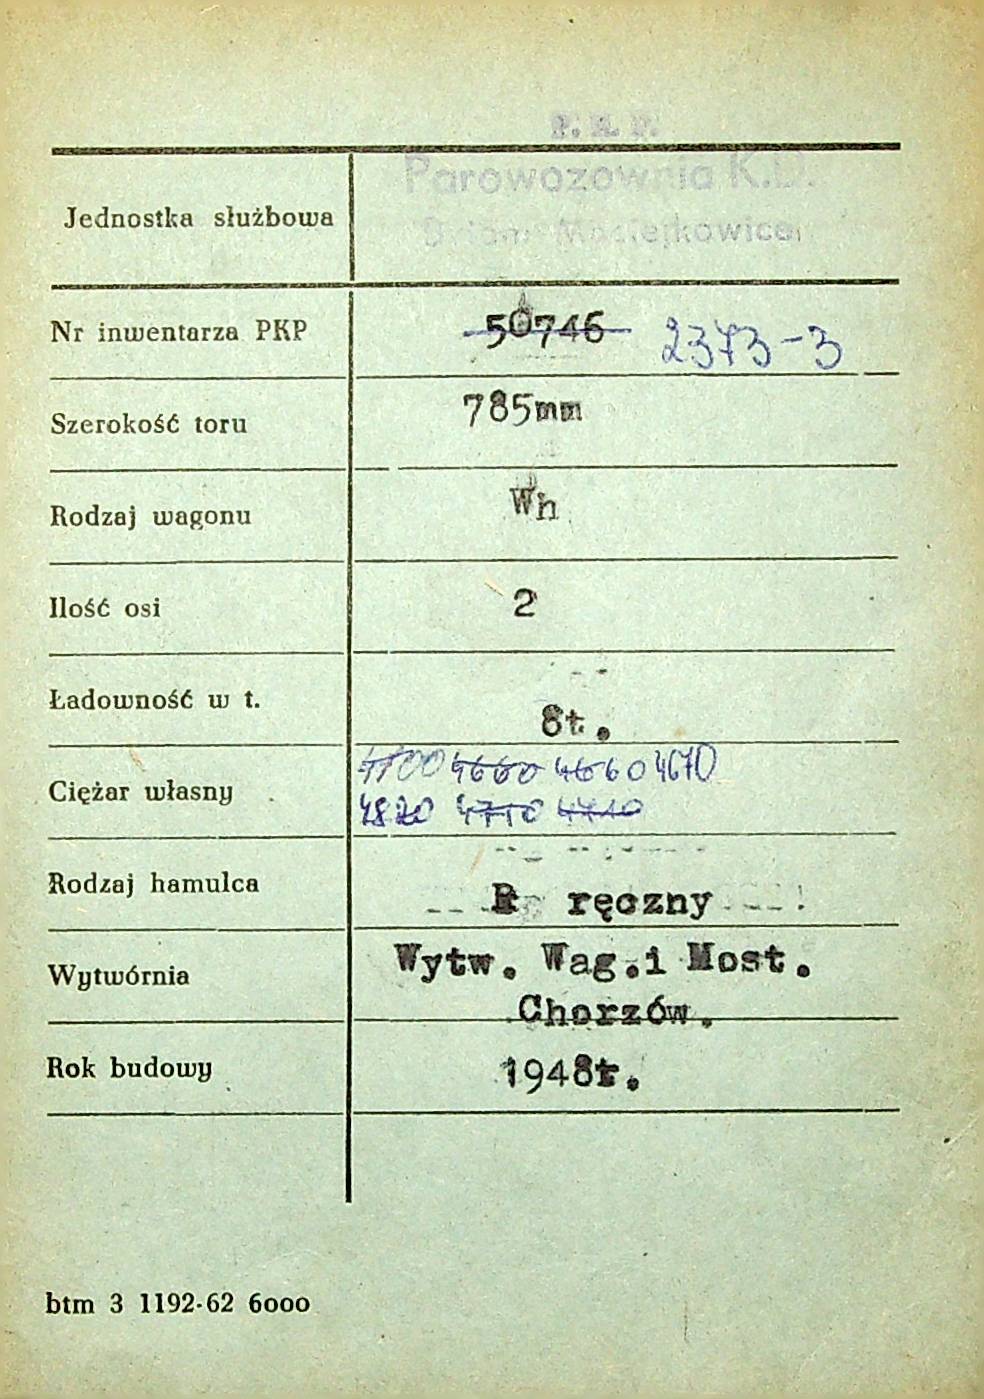 P. K. P.
Parowozownia K.D.
Jednostka służbowa
Maciejkowice
Nr inwentarza PKP 50746 2373-3
Szerokość toru 785mm
Rodzaj wagonu Wh
Ilość osi 2
Ładowność w t. 8t.
4660 4660 4670
Ciężar własny
4820 4710
Rodzaj hamulca R ręczny
Wytwórnia Wytw. Wag.i Most.
Chorzów.
Rok budowy 1948r.
btm 3 1192-62 6000